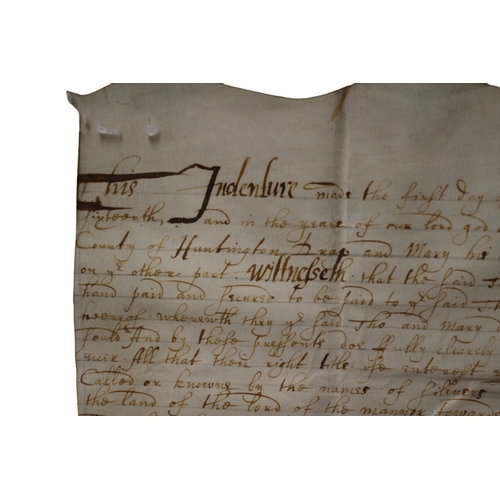 This Indenture made the first day
sixteenth, and in the yeare of our lord god
County of Huntington Drap and Mary his
on yᵉ other part. Wittnesseth that the said
hand paid and secured to be paid to yᵉ said
heereof wherewth they yᵉ said Tho and Mary
sould And by these pressents doe fully clearely
euer All that their right title use interest
Called or knowne by the names of Sillvers
the land of the lord of the mannor towards